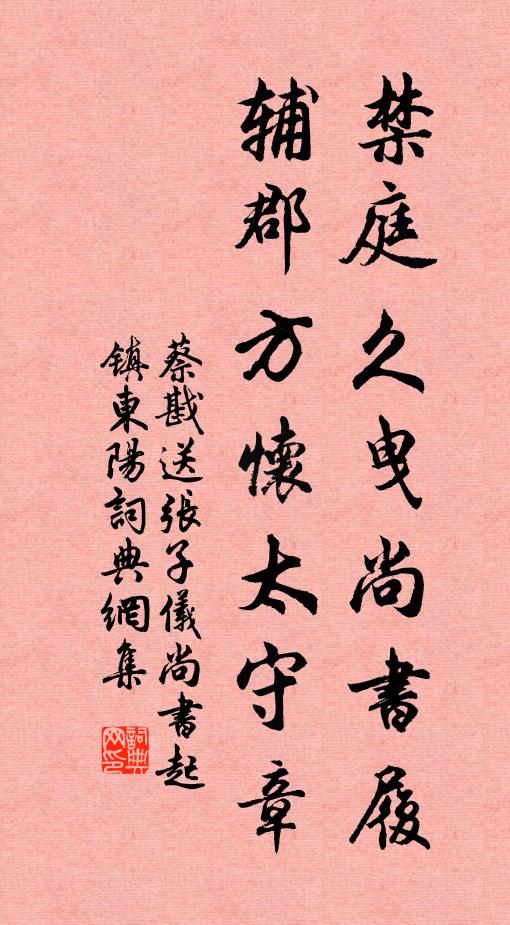 禁庭久曳尚書履
辅郡方懷太守章
蔡戡送張子儀尚書起
镇東陽詞典網集
詞典网印